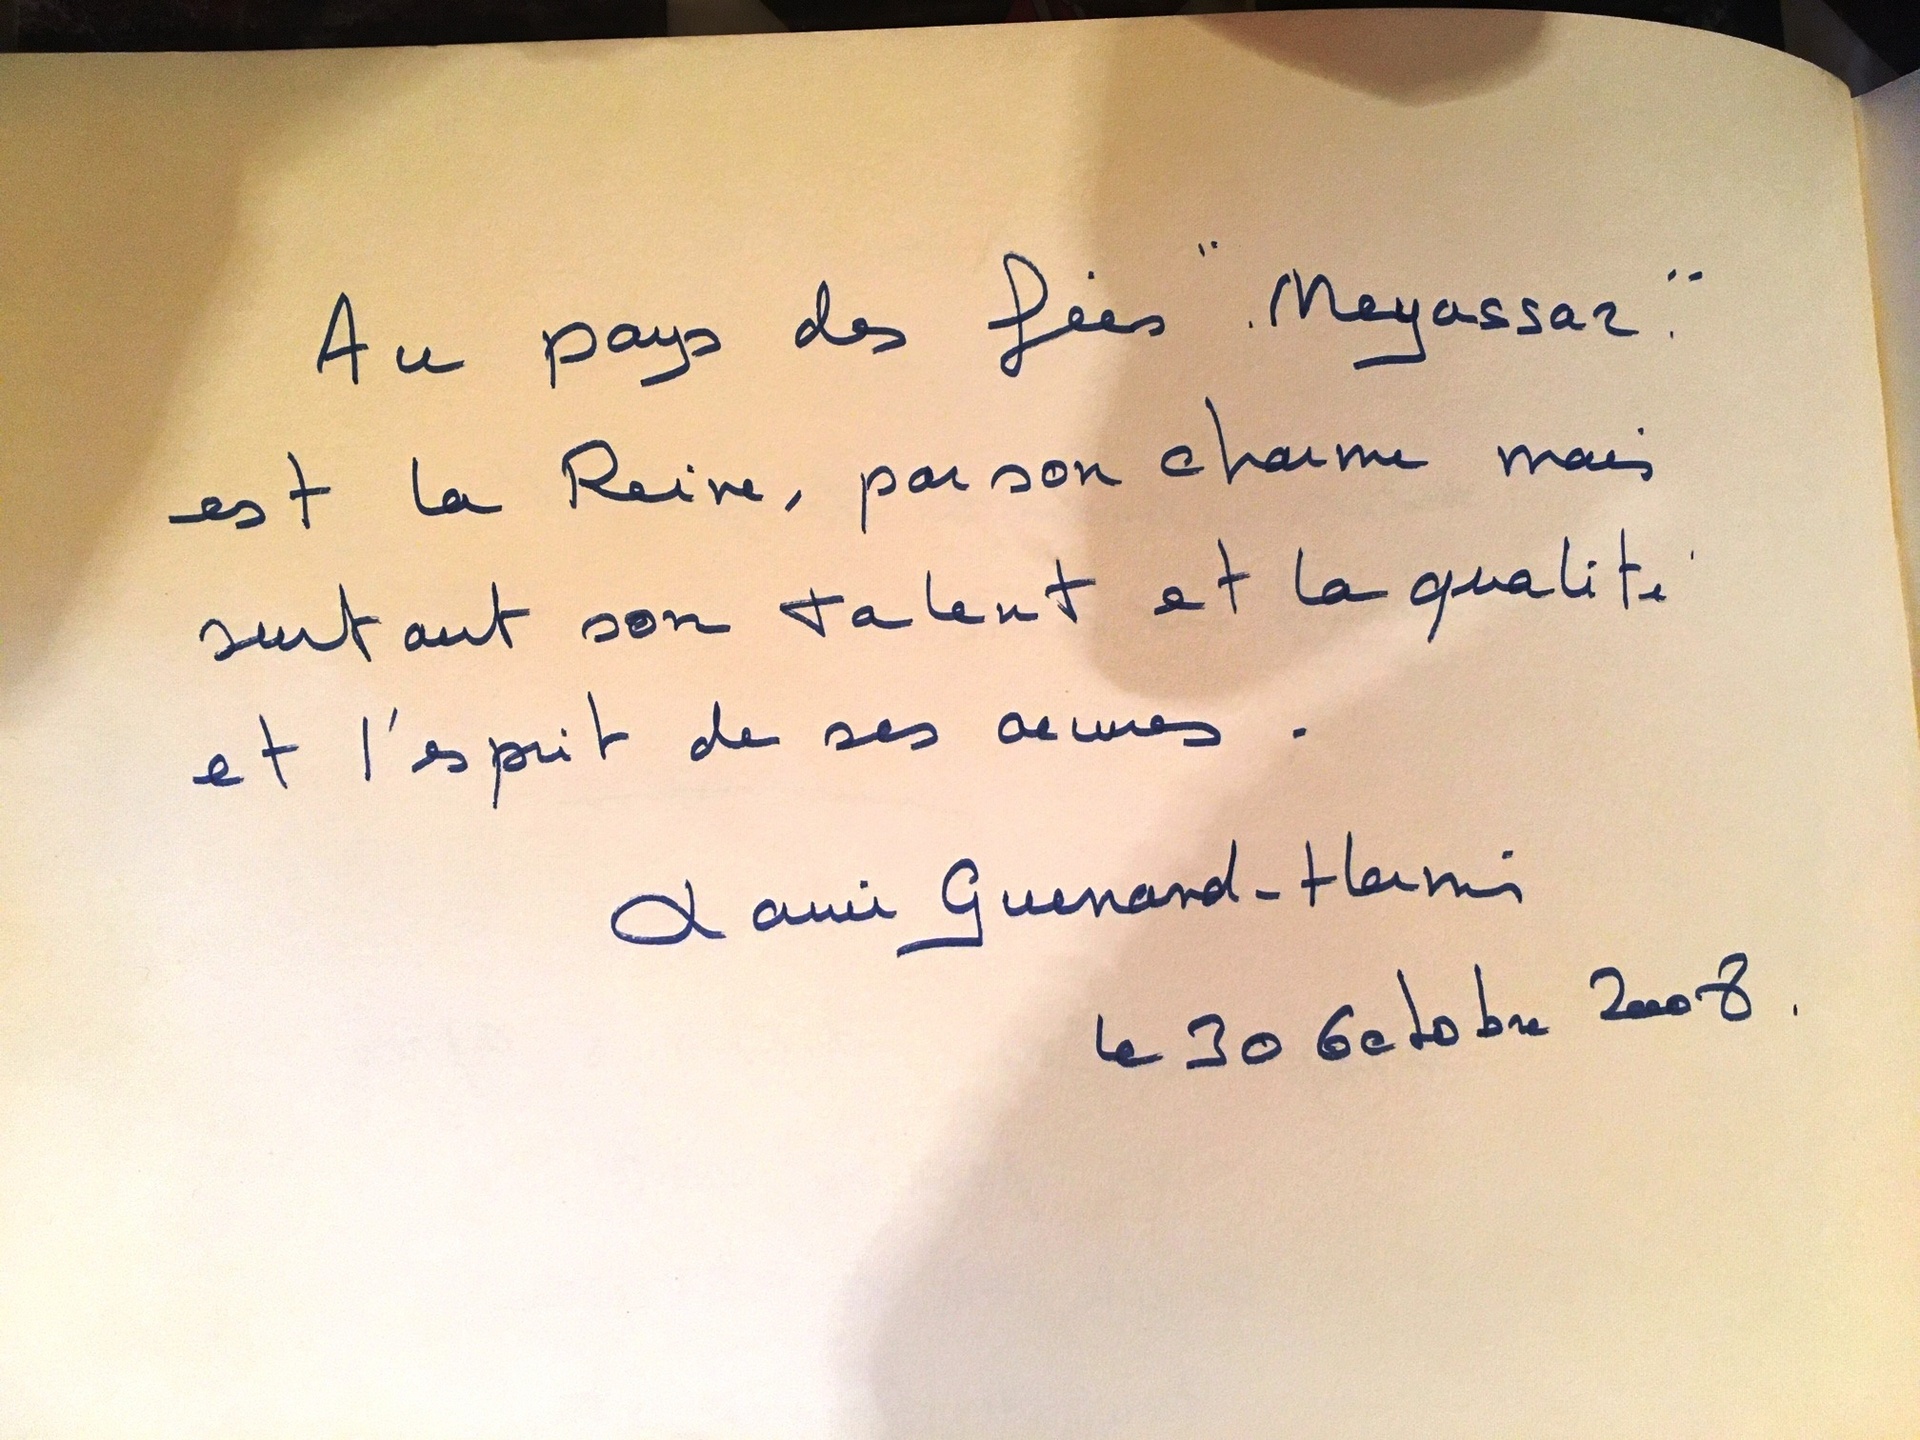 Au pays des fées "Meyassar"
est la Reine, par son charme mais
surtout son talent et la qualité
et l'esprit de ses œuvres.
Guenard-
le 30 Octobre 2008.